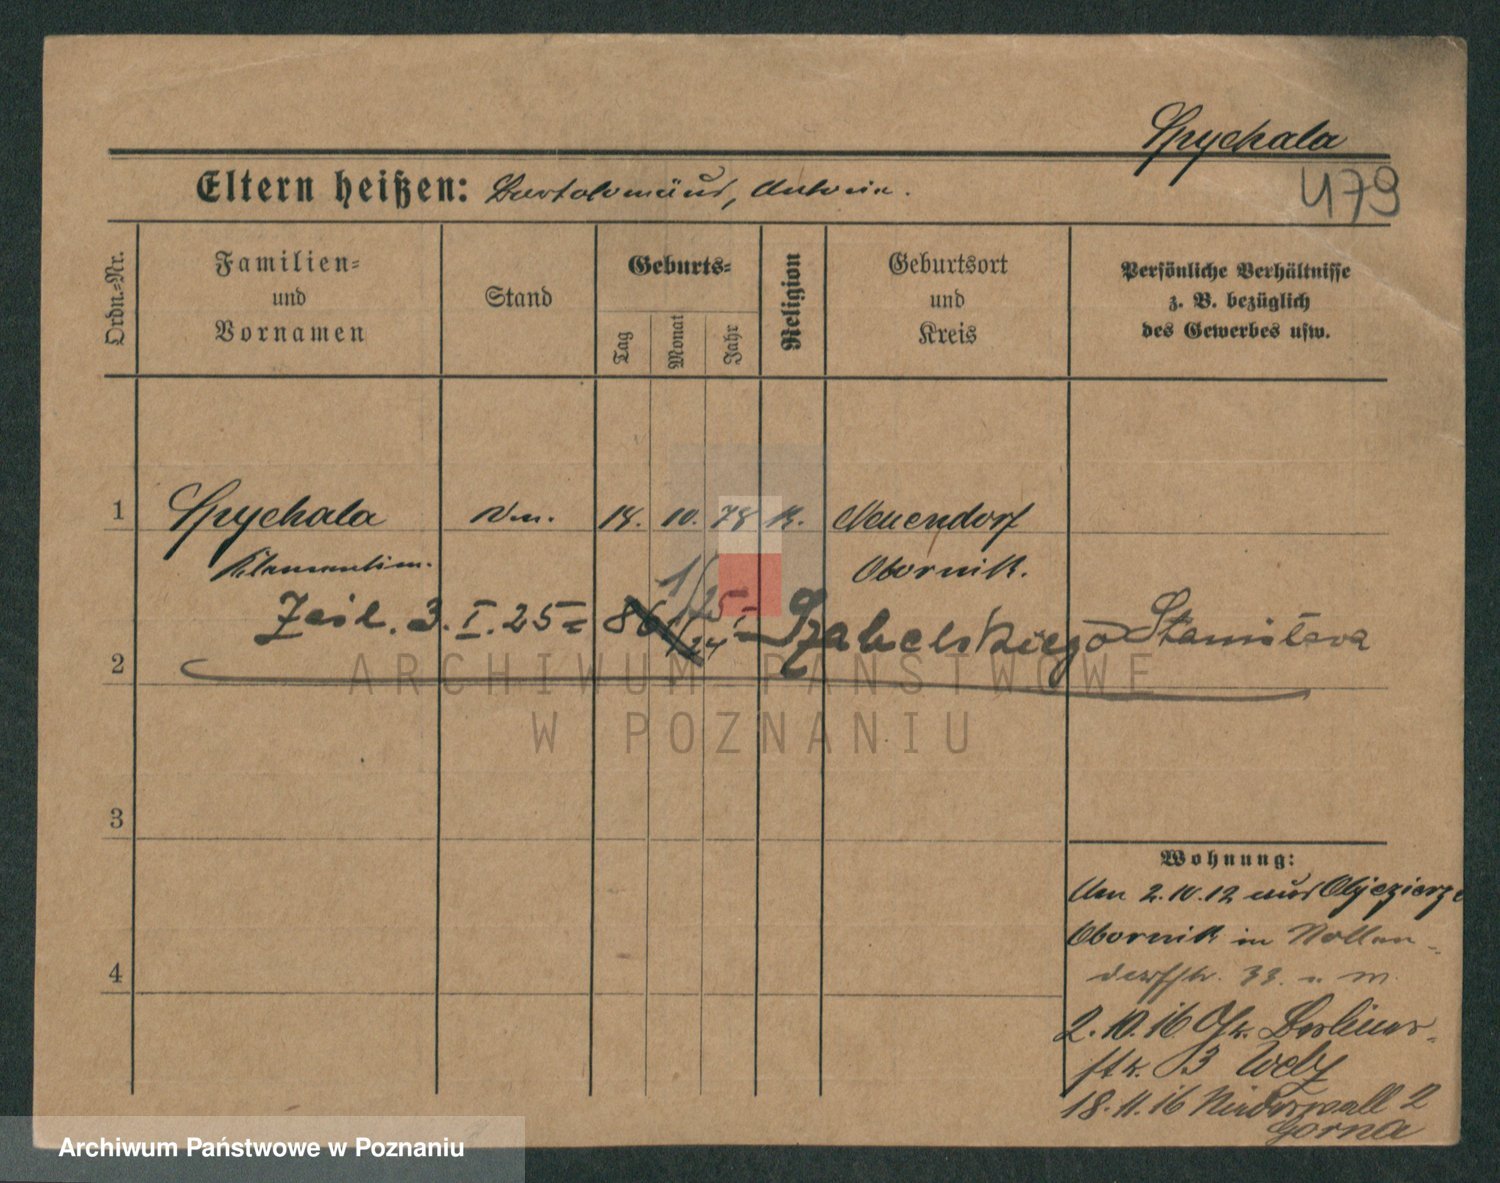 Spychala
Eltern heißen: Bartolomäus, Antonie.
479
Ordn.-Nr.
Familien-
und
Vornamen
Stand
Geburts-
Tag
Monat
Jahr
Religion
Geburtsort
und
Kreis
Persönliche Verhältnisse
z. B. bezüglich
des Gewerbes usw.
1 Spychala 10. 78 K. Neuendorf
Klementine. Obornik.
3. I. 25 = 86 1/25 Szabelskiego Stanisława
2
ARCHIWUM PAŃSTWOWE
W POZNANIU
3
Wohnung:
Am 2.10.12 aus Objezierze
Obornik in Nollen-
4
dorfstr. 33.
2.10.16 Berliner-
str. 3
18.11.16 Niederwall 2
Gorna
Archiwum Państwowe w Poznaniu